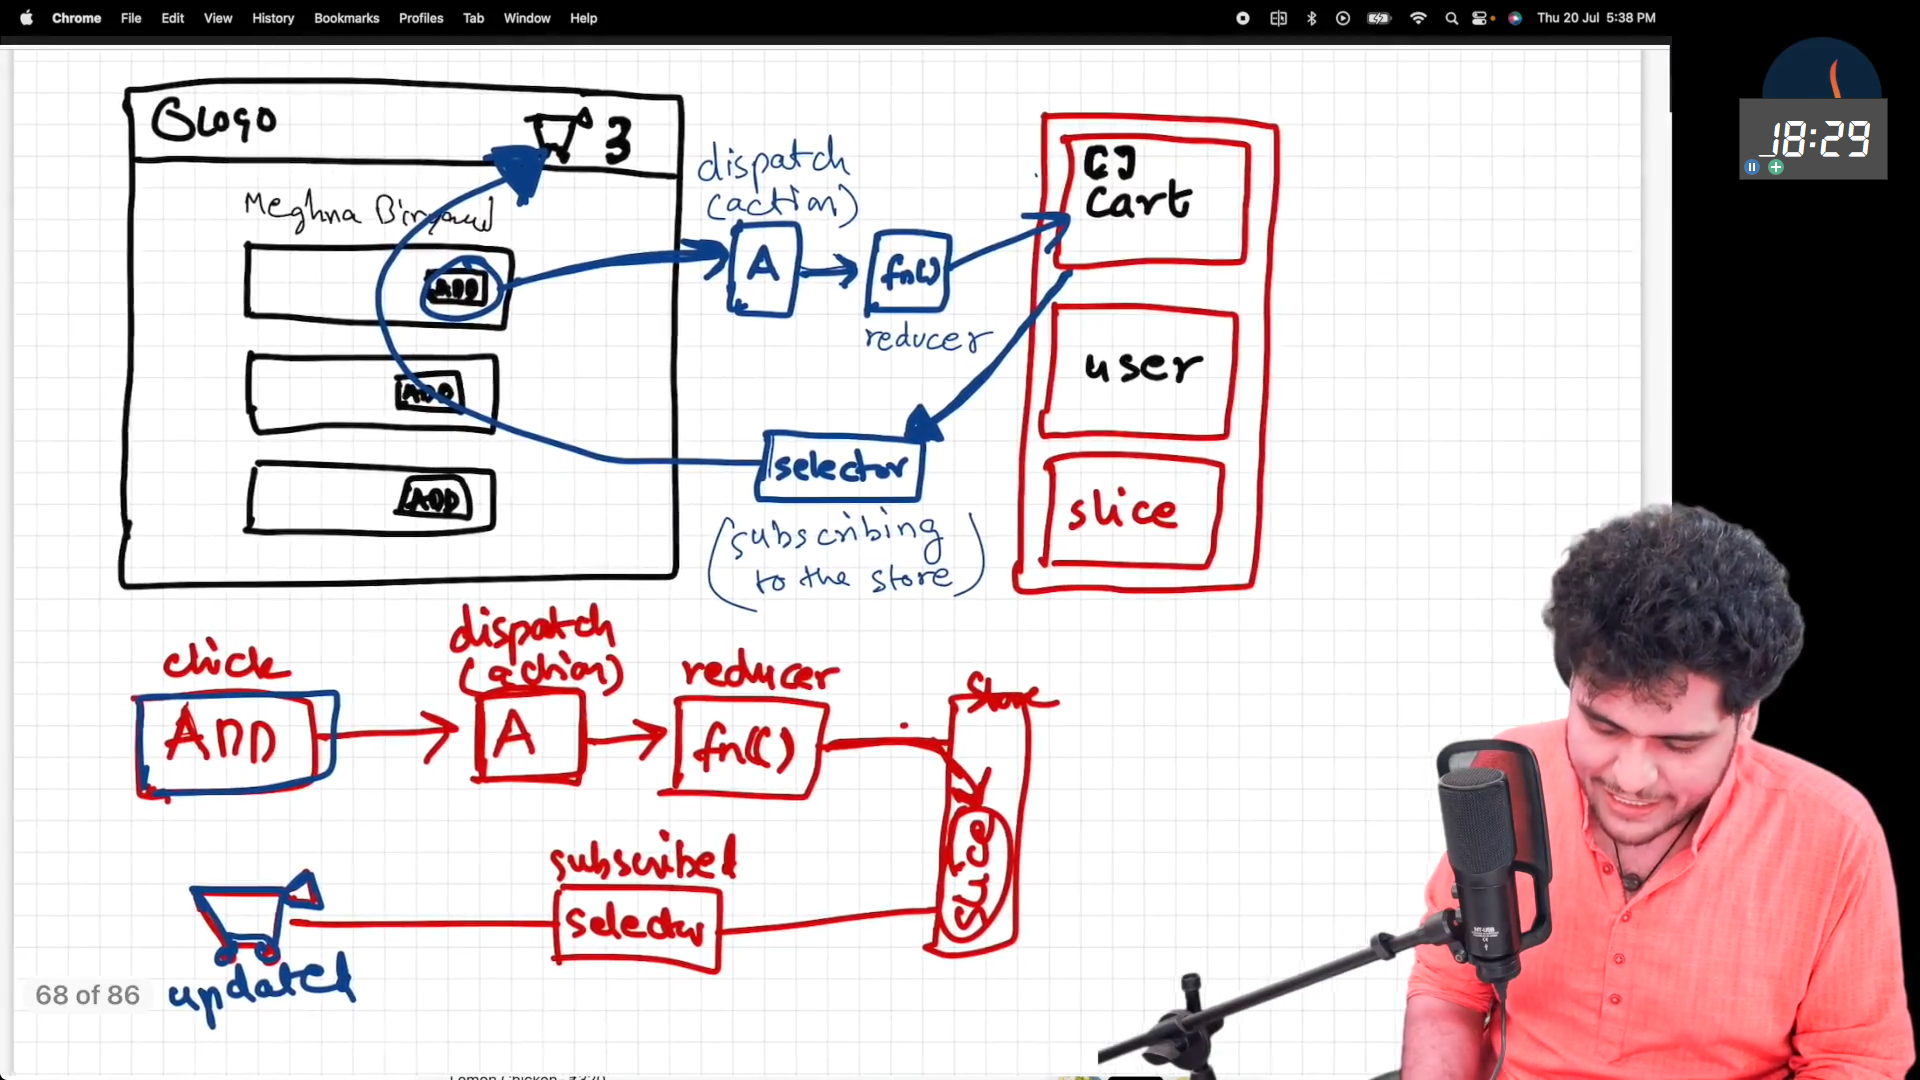 Chrome File Edit View History Bookmarks Profiles Tab Window Help
Thu 20 Jul 5:38 PM
18:29
Logo
3
Meghna
ADD
ADD
ADD
dispatch
(action)
A
fn()
reducer
[]
Cart
user
slice
selector
(subscribing
to the store)
click
ADD
dispatch
(action)
A
reducer
fn()
Store
slice
subscribed
selector
updated
68 of 86